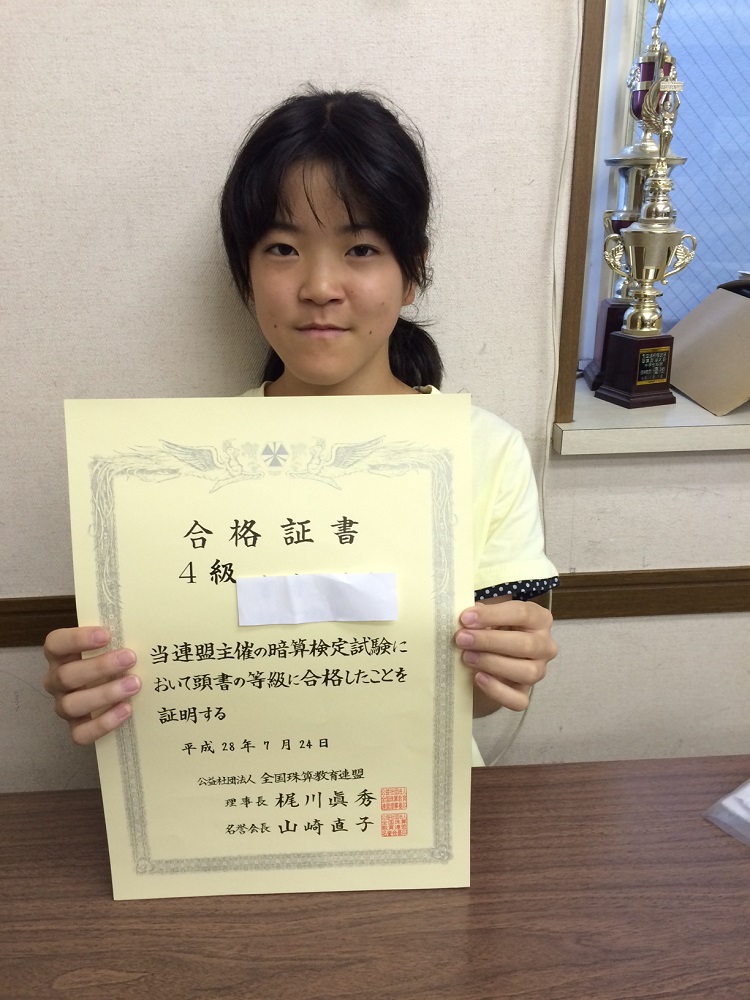 合格証書
4級
当連盟主催の暗算検定試験に
おいて頭書の等級に合格したことを
証明する
平成28年7月24日
公益社団法人 全国珠算教育連盟
理事長 梶川眞秀
名誉会長 山崎直子